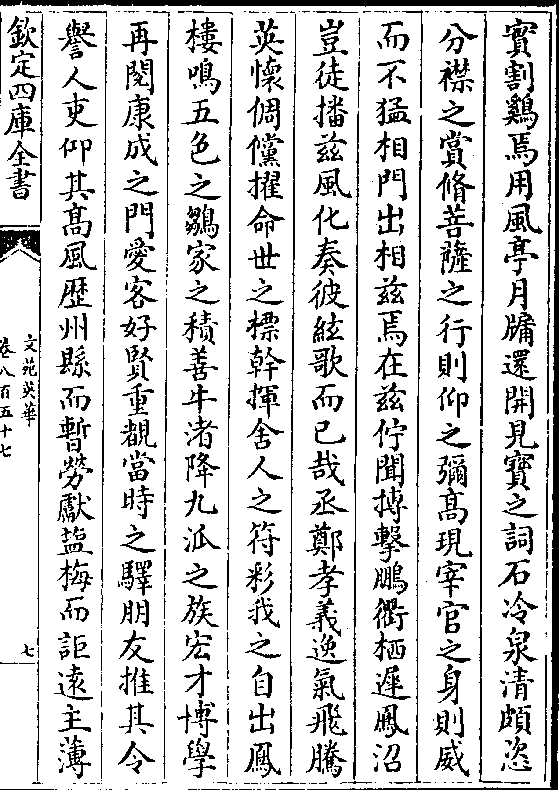 實割鷄焉用風亭月牖還開見寶之詞石冷泉清頗恣
分襟之賞脩菩薩之行則仰之彌髙現宰官之身則威
而不猛相門出相兹焉在兹佇聞搏擊鵬衢栖遲鳳沼
豈徒播兹風化奏彼絃歌而已哉丞鄭孝義逸氣飛騰
英懷倜儻擢命世之標幹揮舍人之符彩我之自出鳳
樓鳴五色之鶵家之積善牛渚降九泒之族宏才博學
再閱康成之門愛客好賢重覩當時之驛朋友推其令
譽人吏仰其髙風歴州縣而暫勞獻塩梅而詎逺主薄
欽定四庫全書
文苑英華
卷八百五十七
七